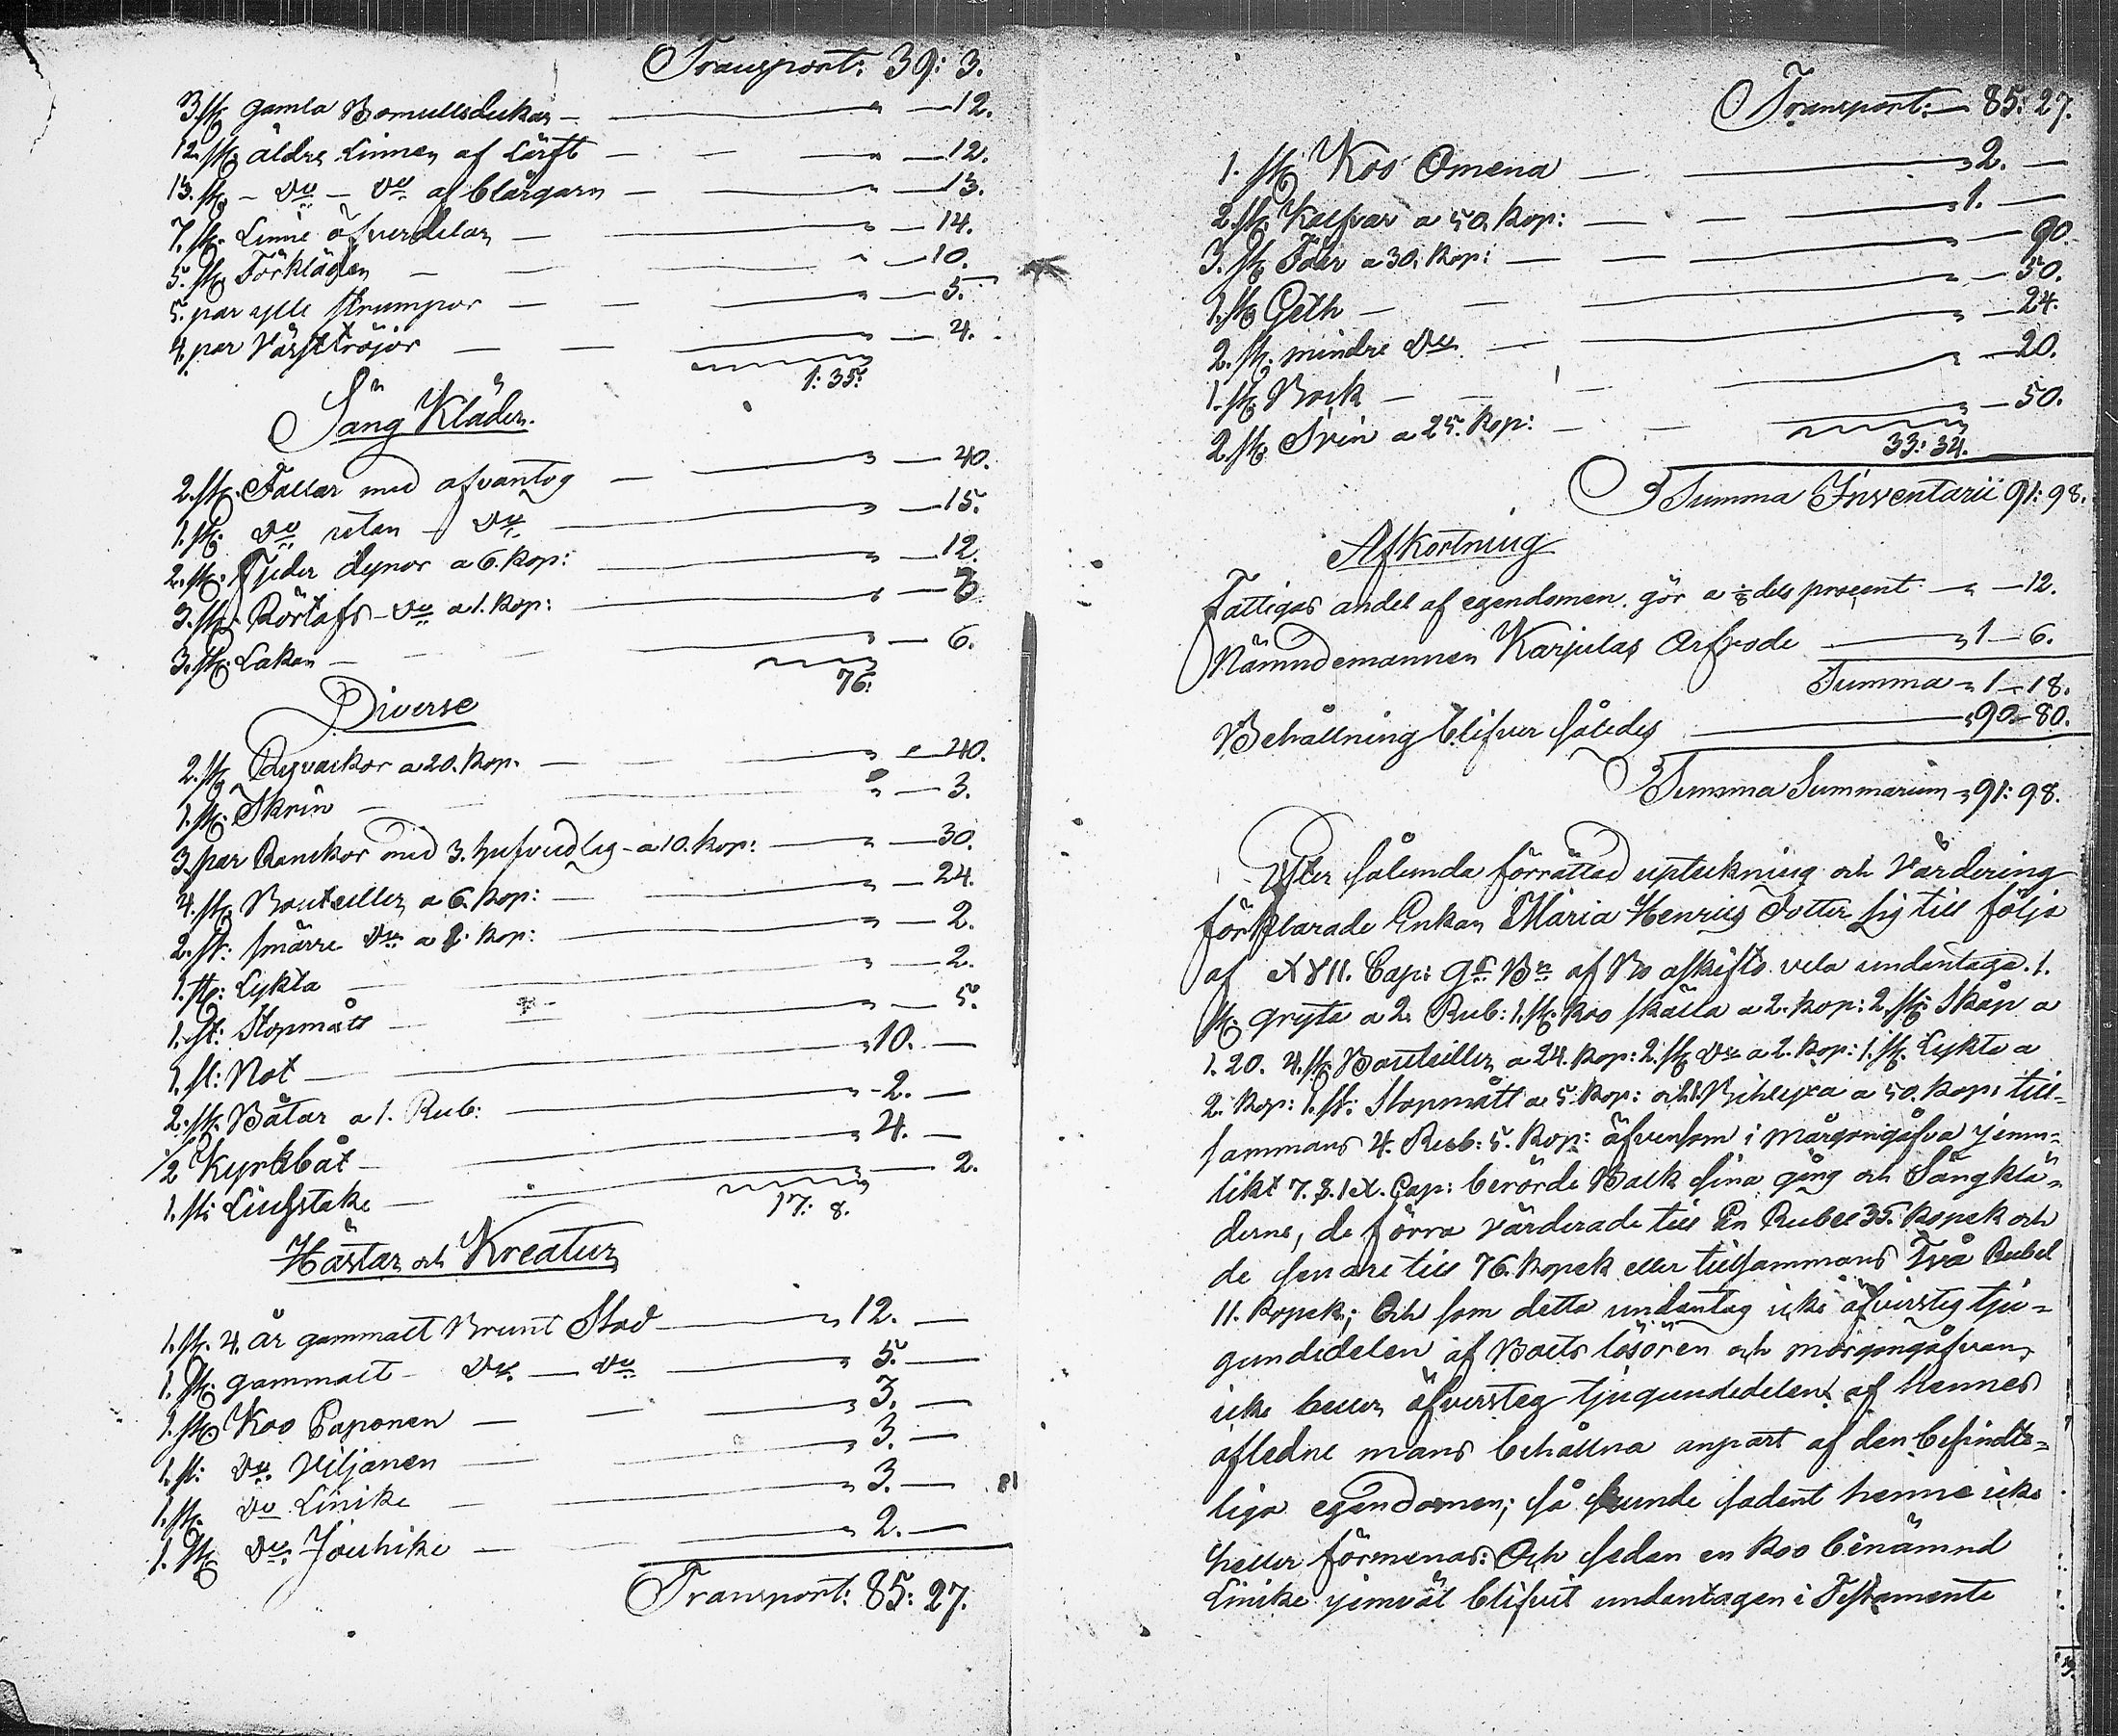 Transport: 39: 3.
3. st. gamla Bomullsdukar — — 12.
12. st. äldre Linnen af Lärft — — 12.
13. st. — do — do af blårgarn — — 13.
7. st. Linne öfverdelar — — 14.
5. st. Förkläden — — 10.
5. par ylle strumpor — — 5.
4. par Västtröjor — — 4.
1: 35.
Säng Kläder.
2. st. Fällar med afvantog — — 40.
1. st. do utan — do — 15.
2. st. Fjeder dynor a 6. Kop: — 12.
3. st. Rörtåfs - do a 1. Kop: — 3
3. st. Lakan — — 6.
76:
Diverse
2. st. a 20. Kop. — — 40.
1. st. Skrin — — 3.
3. par med 3. hufvudlag - a 10. Kop: — 30.
4. st. Bouteiller a 6. Kop: — 24.
2. st: smärre do a 1. Kop: — 2.
1. st: Lykta — 2.
1. st: Stopmått — 5.
1. st: Not — 10. —
2. st. Båtar a 1. Rub: — 2. —
1/2 Kyrkbåt — 4. —
1. st: Liusstake — — 2.
17: 8.
Hästar och Kreatur
1. st. 4. år gammalt Brunt Stod — 12. —
1. st. gammalt — do — do — 5. —
1. st. Koo Paponen — 3. —
1. st: do Viljanen — 3. —
1. st. do Linike — 3. —
1. st. do Jouhike — 2. —
Transport: 85: 27.
Transport: — 85: 27.
1. st. Koo Omena — 2. —
2. st. Kalfvar a 50. Kop: — 1. —
3. st. Fåår a 30. Kop: — 90.
1. st. Geth — — 50.
2. st. mindre do — — 24.
1. st. Bock — — 20.
2. st. Svin a 25. Kop: — — 50.
33: 34.
Summa Inventarii 91: 98.
Afkortning
Fattigas andel af egendomen gör a 1/8 dels procent — — 12.
Nämndemannen Karjulas Arfvode — 1 — 6.
Summa — 1 — 18.
Behållning blifver således — 90 — 80.
Summa Summarum — 91: 98.
Efter sålunda förrättad upteckning och Värdering
förklarade Enkan Maria Henrics Dotter sig till följe
af XVII. Cap: G. B. af Bo afskifto vela undantaga. 1.
st. gryta a 2. Rub: 1. st. Koo skälla a 2. Kop: 2. st. Skåp a
1. 20. 4. st. Bouteiller a 24. Kop: 2. st. do a 2. Kop: 1. st. Lykta a
2. Kop: 1. st: Stopmått a 5. Kop: och 1. a 50. Kop: till-
sammans 4. Rub: 5. Kop: äfvensom i mårgongåfva jemn-
likt 7. §. IX. Cap: berörde Balk sina gång och Sängklä-
derne, de förra värderade till En Rubel 35. Kopek och
de senare till 76. Kopek eller tillsammans Två Rubel
11. Kopek; Och som detta undantag icke öfversteg tju-
gundedelen af Boets lösören och morgongåfvan
icke heller öfversteg tjugundedelen af hennes
afledne mans behållna anpart af den befindte-
liga egendomen; så kunde sådent henne icke
heller förmenas: Och sedan en Koo benämnd
Linike jemväl blifvit undantagen i Testamente